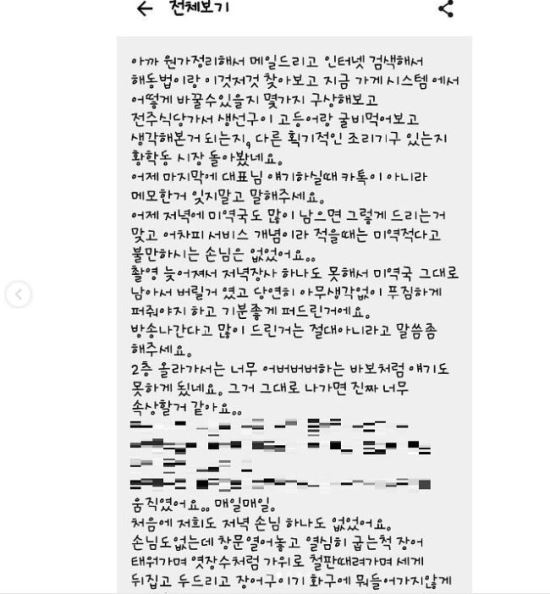 전체보기
아까 원가정리해서 메일드리고 인터넷 검색해서
해동법이랑 이것저것 찾아보고 지금 가게 시스템 에서
어떻게 바꿀수있을지 몇가지 구상해보고
전주식당가서 생선구이 고등어랑 굴비먹어보고
생각해본거 되는지, 다른 획기적인 조리기구 있는지
황학동 시장 돌아봤네요.
어제 마지막에 대표님 얘기하실때 카톡이 아니라
메모한거 잊지말고 말해주세요.
어제 저녁에 미역국도 많이 남으면 그렇게 드리는거
맞고 어차피 서비스 개념이라 적을때는 미역적다고
불만하시는 손님은 없었어요..
촬영 늦어져서 저녁장사 하나도 못해서 미역국 그대로
남아서 버릴거 였고 당연히 아무생각없이 푸짐하게
퍼줘야지 하고 기분좋게 퍼드린거에요.
방송나간다고 많이 드린거는 절대아니라고 말씀좀
해주세요.
2층 올라가서는 너무 어버버버하는 바보처럼 얘기도
못하게 됬네요. 그거 그대로 나가면 진짜 너무
속상할거 같아요..
움직였어요.. 매일매일.
처음에 저희도 저녁 손님 하나도 없었어요.
손님도없는데 창문열어놓고 열심히 굽는척 장어
태워가며 엿장수처럼 가위로 철판때려가며 세게
뒤집고 두드리고 장어구이기 화구에 뭐들어가지않게